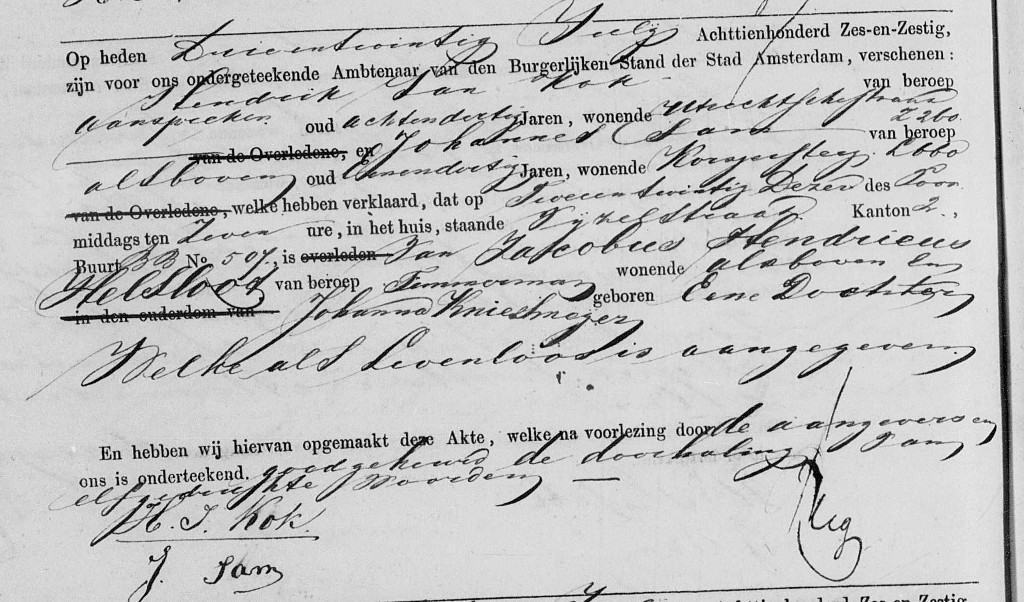 Op heden Drieentwintig July Achttienhonderd Zes-en-Zestig,
zijn voor ons ondergeteekende Ambtenaar van den Burgerlijken Stand der Stad Amsterdam, verschenen:
Hendrik Jan Kok van beroep
Aanspreker oud achtendertig Jaren, wonende Utrechtschestraat
van de Overledene, en Johannes Sam van beroep
alsboven oud Jaren, wonende
van de Overledene, welke hebben verklaard, dat op Tweeentwintig Dezer des Voor
middags ten Zeven ure, in het huis, staande Vyzelstraat Kanton 2,
Buurt BB No 507, is overleden Jan Jacobus Hendricus
Helsloot van beroep Timmerman wonende alsboven en
in den ouderdom van Johanna Kniesmeyer geboren Eene Dochter
Welke als Levenloos is aangegeven.
En hebben wij hiervan opgemaakt deze Akte, welke na voorlezing door de aangevers en
ons is onderteekend. goedgekeurd de doorhaling van
elf gedrukte woorden —
H. J. Kok.
J. Sam